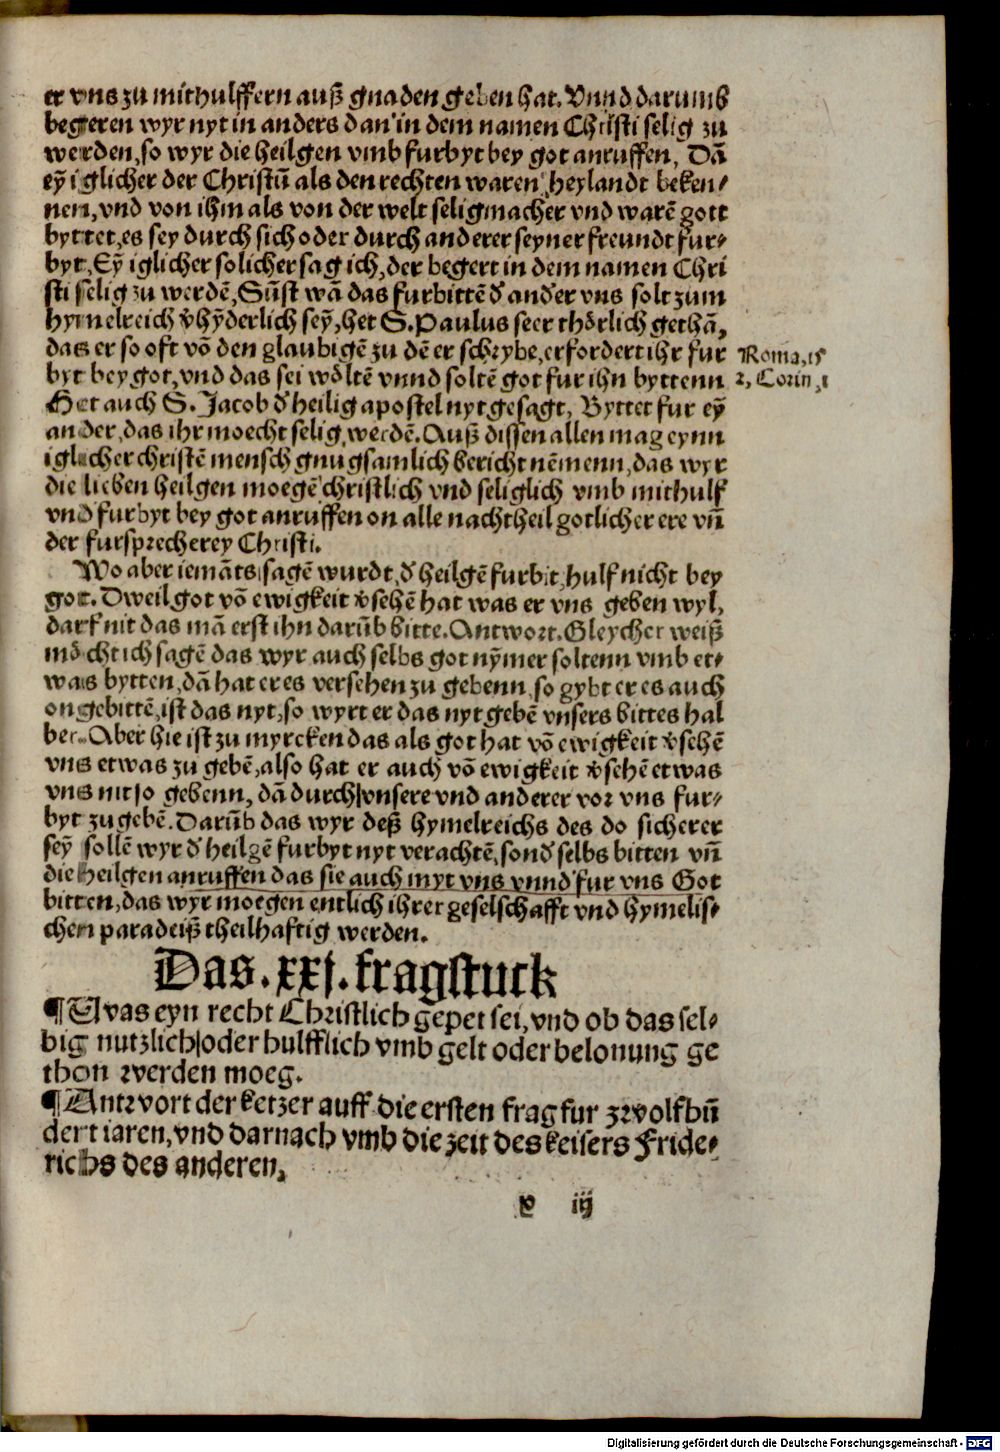 er vns zu mithulffern auß gnaden geben hat. Vnnd darumb
begeren wyr nyt in anders dan in dem namen Christi selig zu
werden, so wyr die heilgen vmb furbyt bey got anruffen, Dā
eȳ iglicher der Christū als den rechten waren heylandt beken⸗
nen, vnd von ihm als von der welt seligmacher vnd warē gott
byttet, es sey durch sich oder durch anderer seyner freundt fur⸗
byt, Eȳ iglicher solicher sag ich, der begert in dem namen Chri
sti selig zu werdē, Sūst wā das furbittē d' ander vns solt zum
hymelreich v̄hȳderlich seȳ, het S. Paulus seer thörlich gethā,
das er so oft vō den glaubigē zu dē er schrybe, erfordert ihr fur
byt bey got, vnd das sei wöltē vnnd soltē got fur ihn byttenn
Het auch S. Jacob d' heilig apostel nyt gesagt, Byttet fur eȳ
ander, das ihr moecht selig werdē. Auß dissen allen mag eynn
iglicher christē mensch gnugsamlich bericht nēmenn, das wyr
die lieben heilgen moegē christlich vnd seliglich vmb mithulf
vnd furbyt bey got anruffen on alle nachtheil gotlicher ere vn̄
der fursprecherey Christi.
Wo aber iemāts sagē wurdt, d' heilgē furbit, hulf nicht bey
got. Dweil got vō ewigkeit v̄sehē hat was er vns geben wyl,
darf nit das mā erst ihn darūb bitte. Antwort. Gleycher weiß
möcht ich sagē das wyr auch selbs got nȳmer soltenn vmb et⸗
was bytten, dā hat er es versehen zu gebenn, so gybt er es auch
on gebittē, ist das nyt, so wyrt er das nyt gebē vnsers bittes hal
ber. Aber hie ist zu myrcken das als got hat vō ewigkeit v̄sehē
vns etwas zu gebē, also hat er auch vō ewigkeit v̄sehē etwas
vns nit so gebenn, dā durch vnsere vnd anderer vor vns fur⸗
byt zu gebē. Darūb das wyr deß hymelreichs des do sicherer
seȳ sollē wyr d' heilgē furbyt nyt verachtē, sond' selbs bitten vn̄
die heilgen anruffen das sie auch myt vns vnnd fur vns Got
bitten, das wyr moegen entlich ihrer geselschafft vnd hymelis⸗
chen paradeiß theilhaftig werden.
Roma. 15
2, Corin. 1
Das. xxj. fragstuck
¶ Was eyn recht Christlich gepet sei, vnd ob das sel⸗
big nutzlich oder hulfflich vmb gelt oder belonung ge
thon werden moeg.
¶ Antwort der ketzer auff die ersten frag fur zwolfhū
dert iaren, vnd darnach vmb die zeit des keisers Fride⸗
richs des anderen,
iij
Digitalisierung gefördert durch die Deutsche Forschungsgemeinschaft - DFG